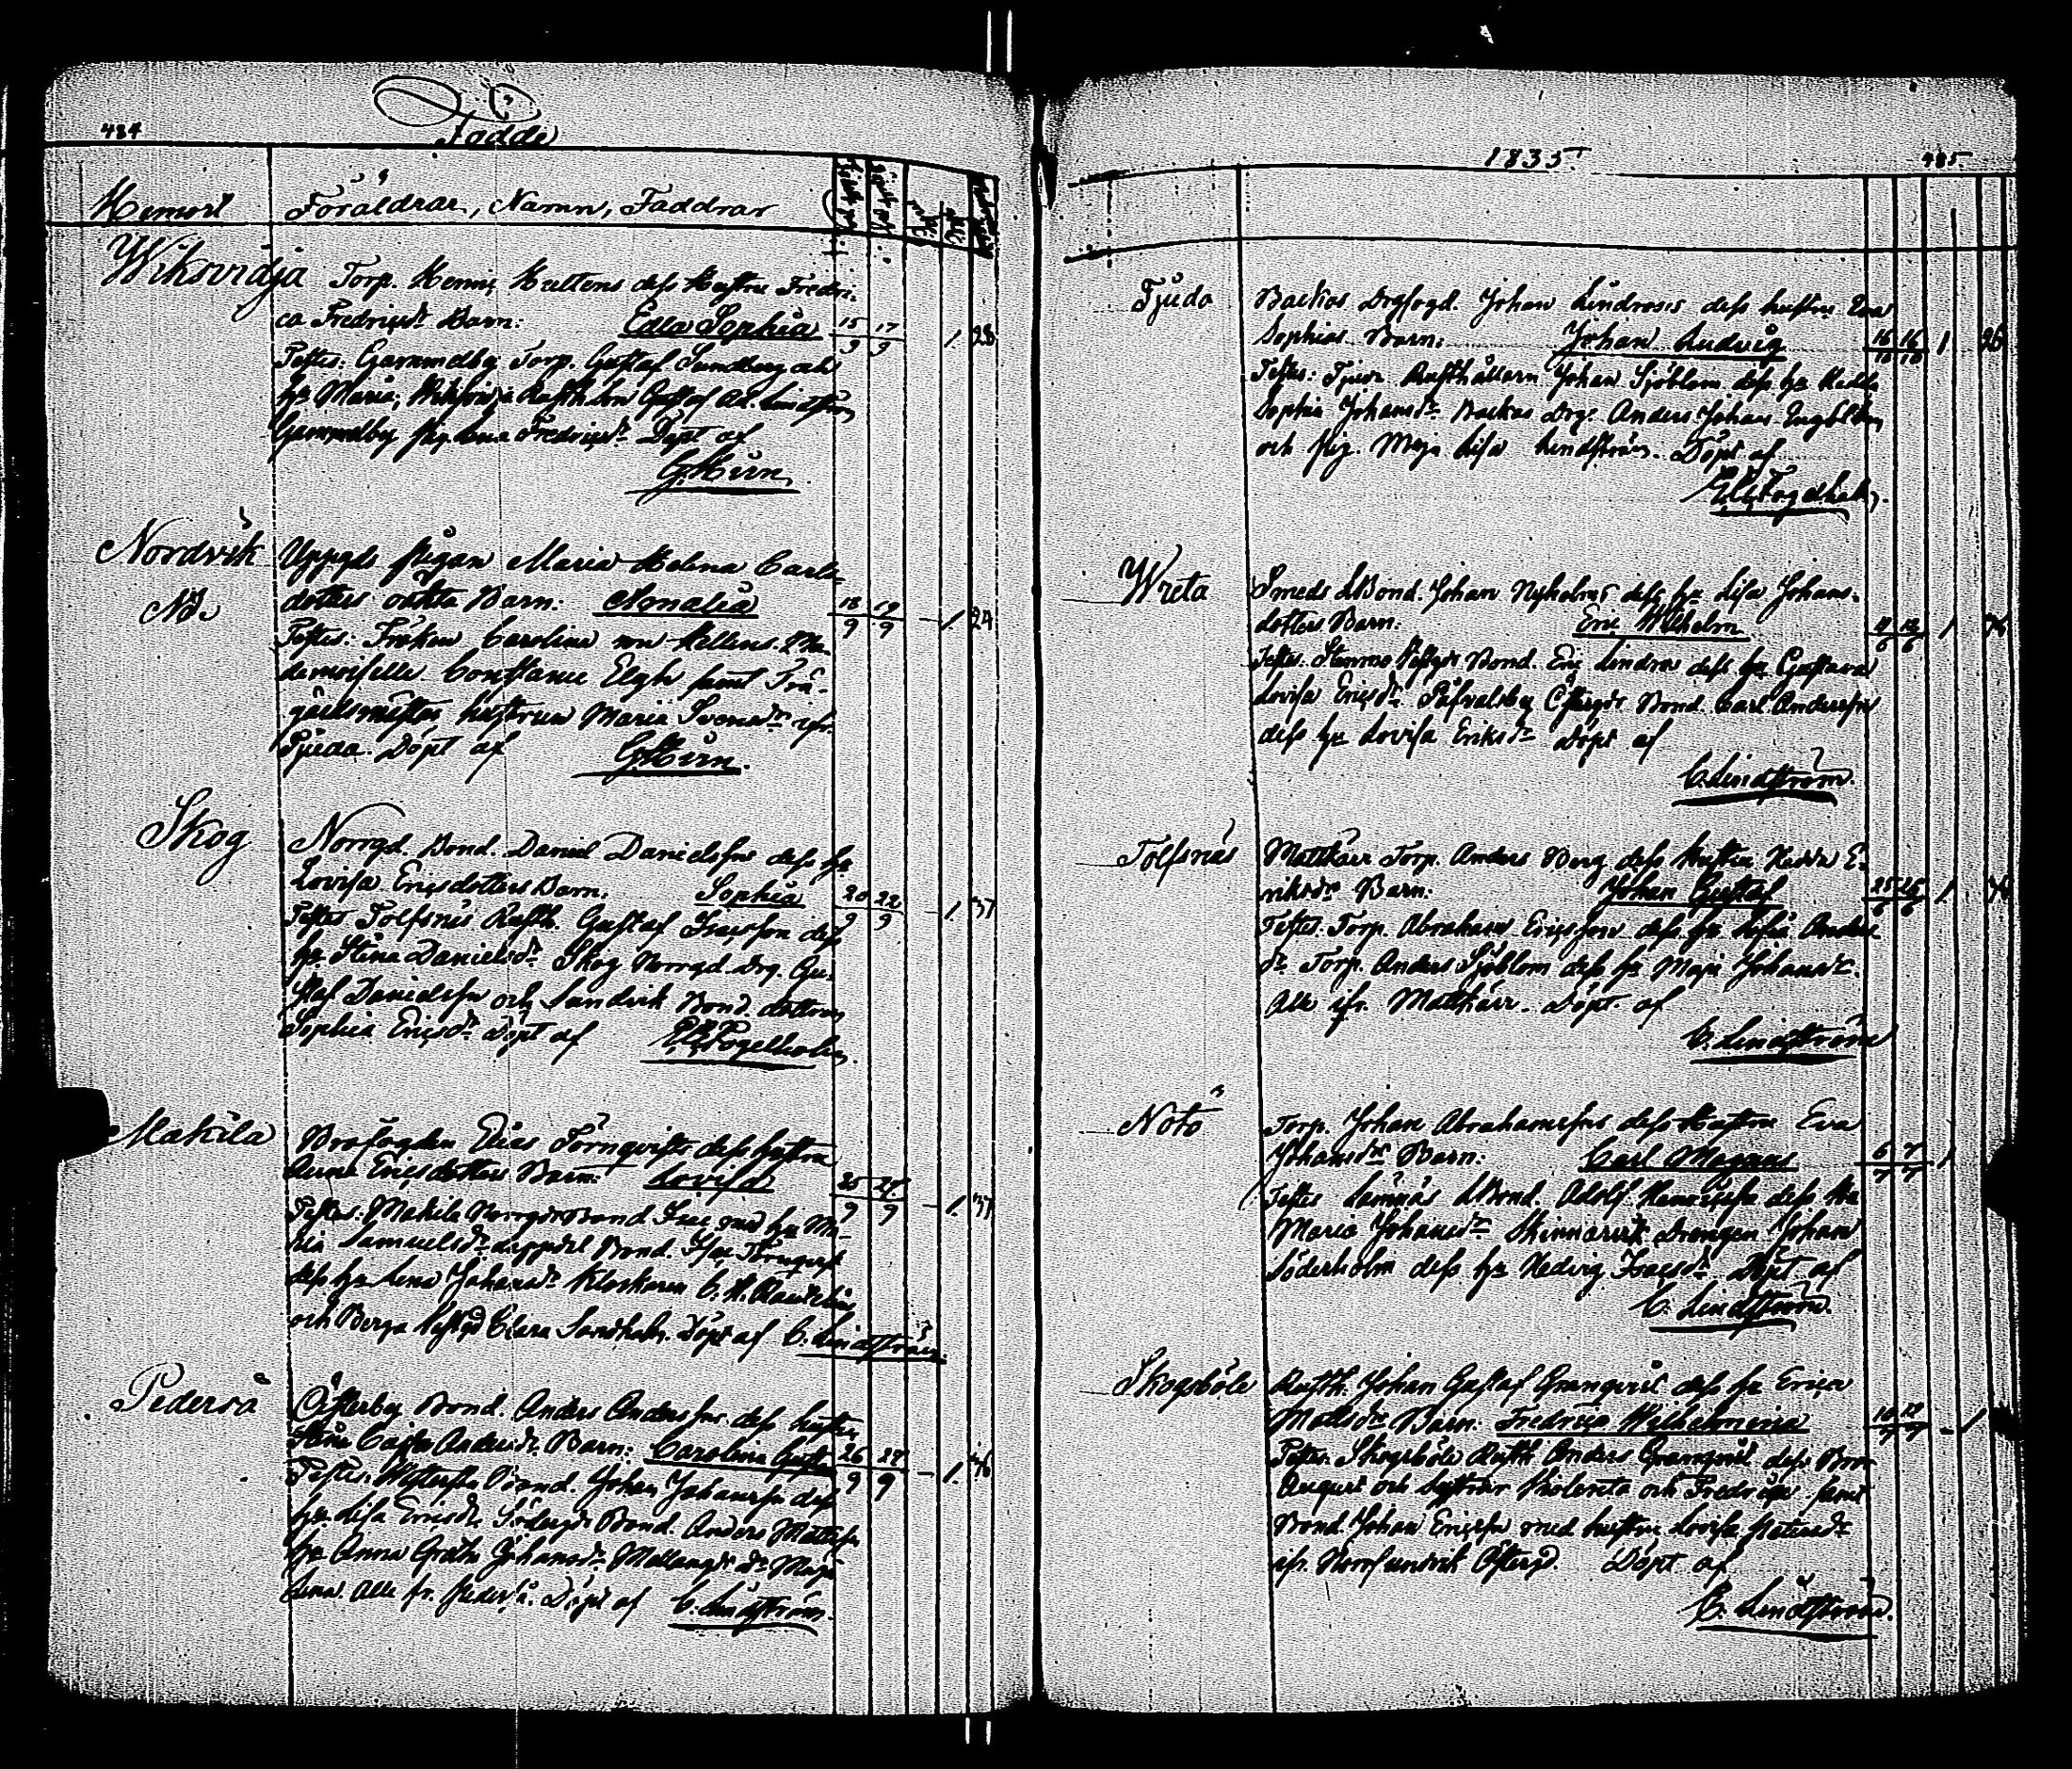 484
Födde
Hemvist Föräldrar, Namn, Faddrar
Wiksvidja Torp. Henric Hultens dess Hustru Fredri-
ca Fredricsdr Barn: Edla Sophia 15/9 17/9 1 28
Testes: Gammelby Torp. Gustaf Sundberg och
hu Maria, Wiksvidja Rusth. Son Gustaf Ad. Lindström
Gammelby pig. Lena Fredricsdr Döpt af
G. Hirn
Nordvik Uppgds pigan Maria Helena Carls-
No. dotters oäkta Barn: Amalia 18/9 19/9 1 24
Testes: Fröken Carolina von Mellens. Ma-
demoiselle Constance Elgh samt Trä-
gårdsmästar hustrun Maria Svensdr ifr.
Tjuda. Döpt af G. Hirn.
Skog Norrgd Bond. Daniel Danielsons dess hu
Lovisa Ericsdotters Barn. Sophia 20/9 22/9 1 37
Testes Tolfsnäs Rusth. Gustaf Isacsson dess
hu Stina Danielsdr Skog Norrgd Drg. Gu-
staf Danielsson och Sandvik Bond. dottren
Sophia Ericsdr Döpt af Fogelholm.
Makila Brofogden Elias Törnqvists dess hustru
Anna Ericsdotters Barn: Lovisa 25/9 27/9 1 37
Testes: Makila Norrgds Bond Isac med hu Ma-
ria Samuelsdr Bond. Isac Törnqvist
dess hu Lena Johansdr Klockaren C. H.
och Clara Sandholm. Döpt af C. Lindström.
Pederså Österby Bond. Anders Anderssons dess hustru
Stina Cajsa Andersdr Barn: Carolina Gustava 26/9 27/9 1 46
Testes: Bond. Johan Johansson dess
hu Lisa Ericsdr Södergds Bond. Anders Mattsson
hu Anna Greta Johansdr Mellangds dr Maja
Lena Alle fr. Pederså. Döpt af C. Lindström.
1835 485
Tjuda Backas Drgfogd. Johan Lindroses dess hustru Eva
Sophias Barn: Johan Ludvig 16/10 16/10 1 26
Testes: Tjuda Rusthållarn Johan Sjöblom dess hu Hedda
Sophia Johansdr Backas Drg. Anders Johan Engblom
och pig. Maja Lisa Lindström. Döpt af
Fogelholm.
Wreta Smeds LBond. Johan Nyholms dess hu Lisa Johans-
dotters Barn: Eric Wilhelm 11/6 12/6 1 36
Testes: Stenmo Bond. Eric Lindros dess hu Gustava
Lovisa Ericsdr Påfvalsby Östergds Bond. Carl Andersson
dess hu Lovisa Eriksdr Döpt af
C. Lindström.
Tolfsnäs Mattkärr Torp. Anders Berg dess Hustru Hedda E-
riksdrs Barn: Johan Gustaf 25/6 25/6 1 36
Testes: Torp. Abraham Ericsson dess hu Sofia Anders
dr Torp. Anders Sjöblom dess hu Maja Johansdr.
Alle ifr. Mattkärr. Döpt af
C. Lindström
Nötö Torp. Johan Abrahamssons dess Hustru Eva
Johansdrs Barn: Carl Magnus 6/7 7/7 1
Testes Lamnäs LBond. Adolf Henricsson dess Hu
Maria Johansdr Skinnarvik Drengen Johan
Söderholm dess hu Hedvig Isacsdr Döpt af
C. Lindström.
Skogsböle Rusth. Johan Gustaf Granqvist dess hu Erica
Mattsdrs Barn: Fredrica Wilhelmina 10/7 12/7 1
Testes Skogsböle Rusth Anders Granqvist dess Bror
August och systrar och Fredrica samt
Bond. Johan Ericsson med hustru Lovisa Petersdr
ifr. Norrsundvik Östergd. Döpt af
C. Lindström.